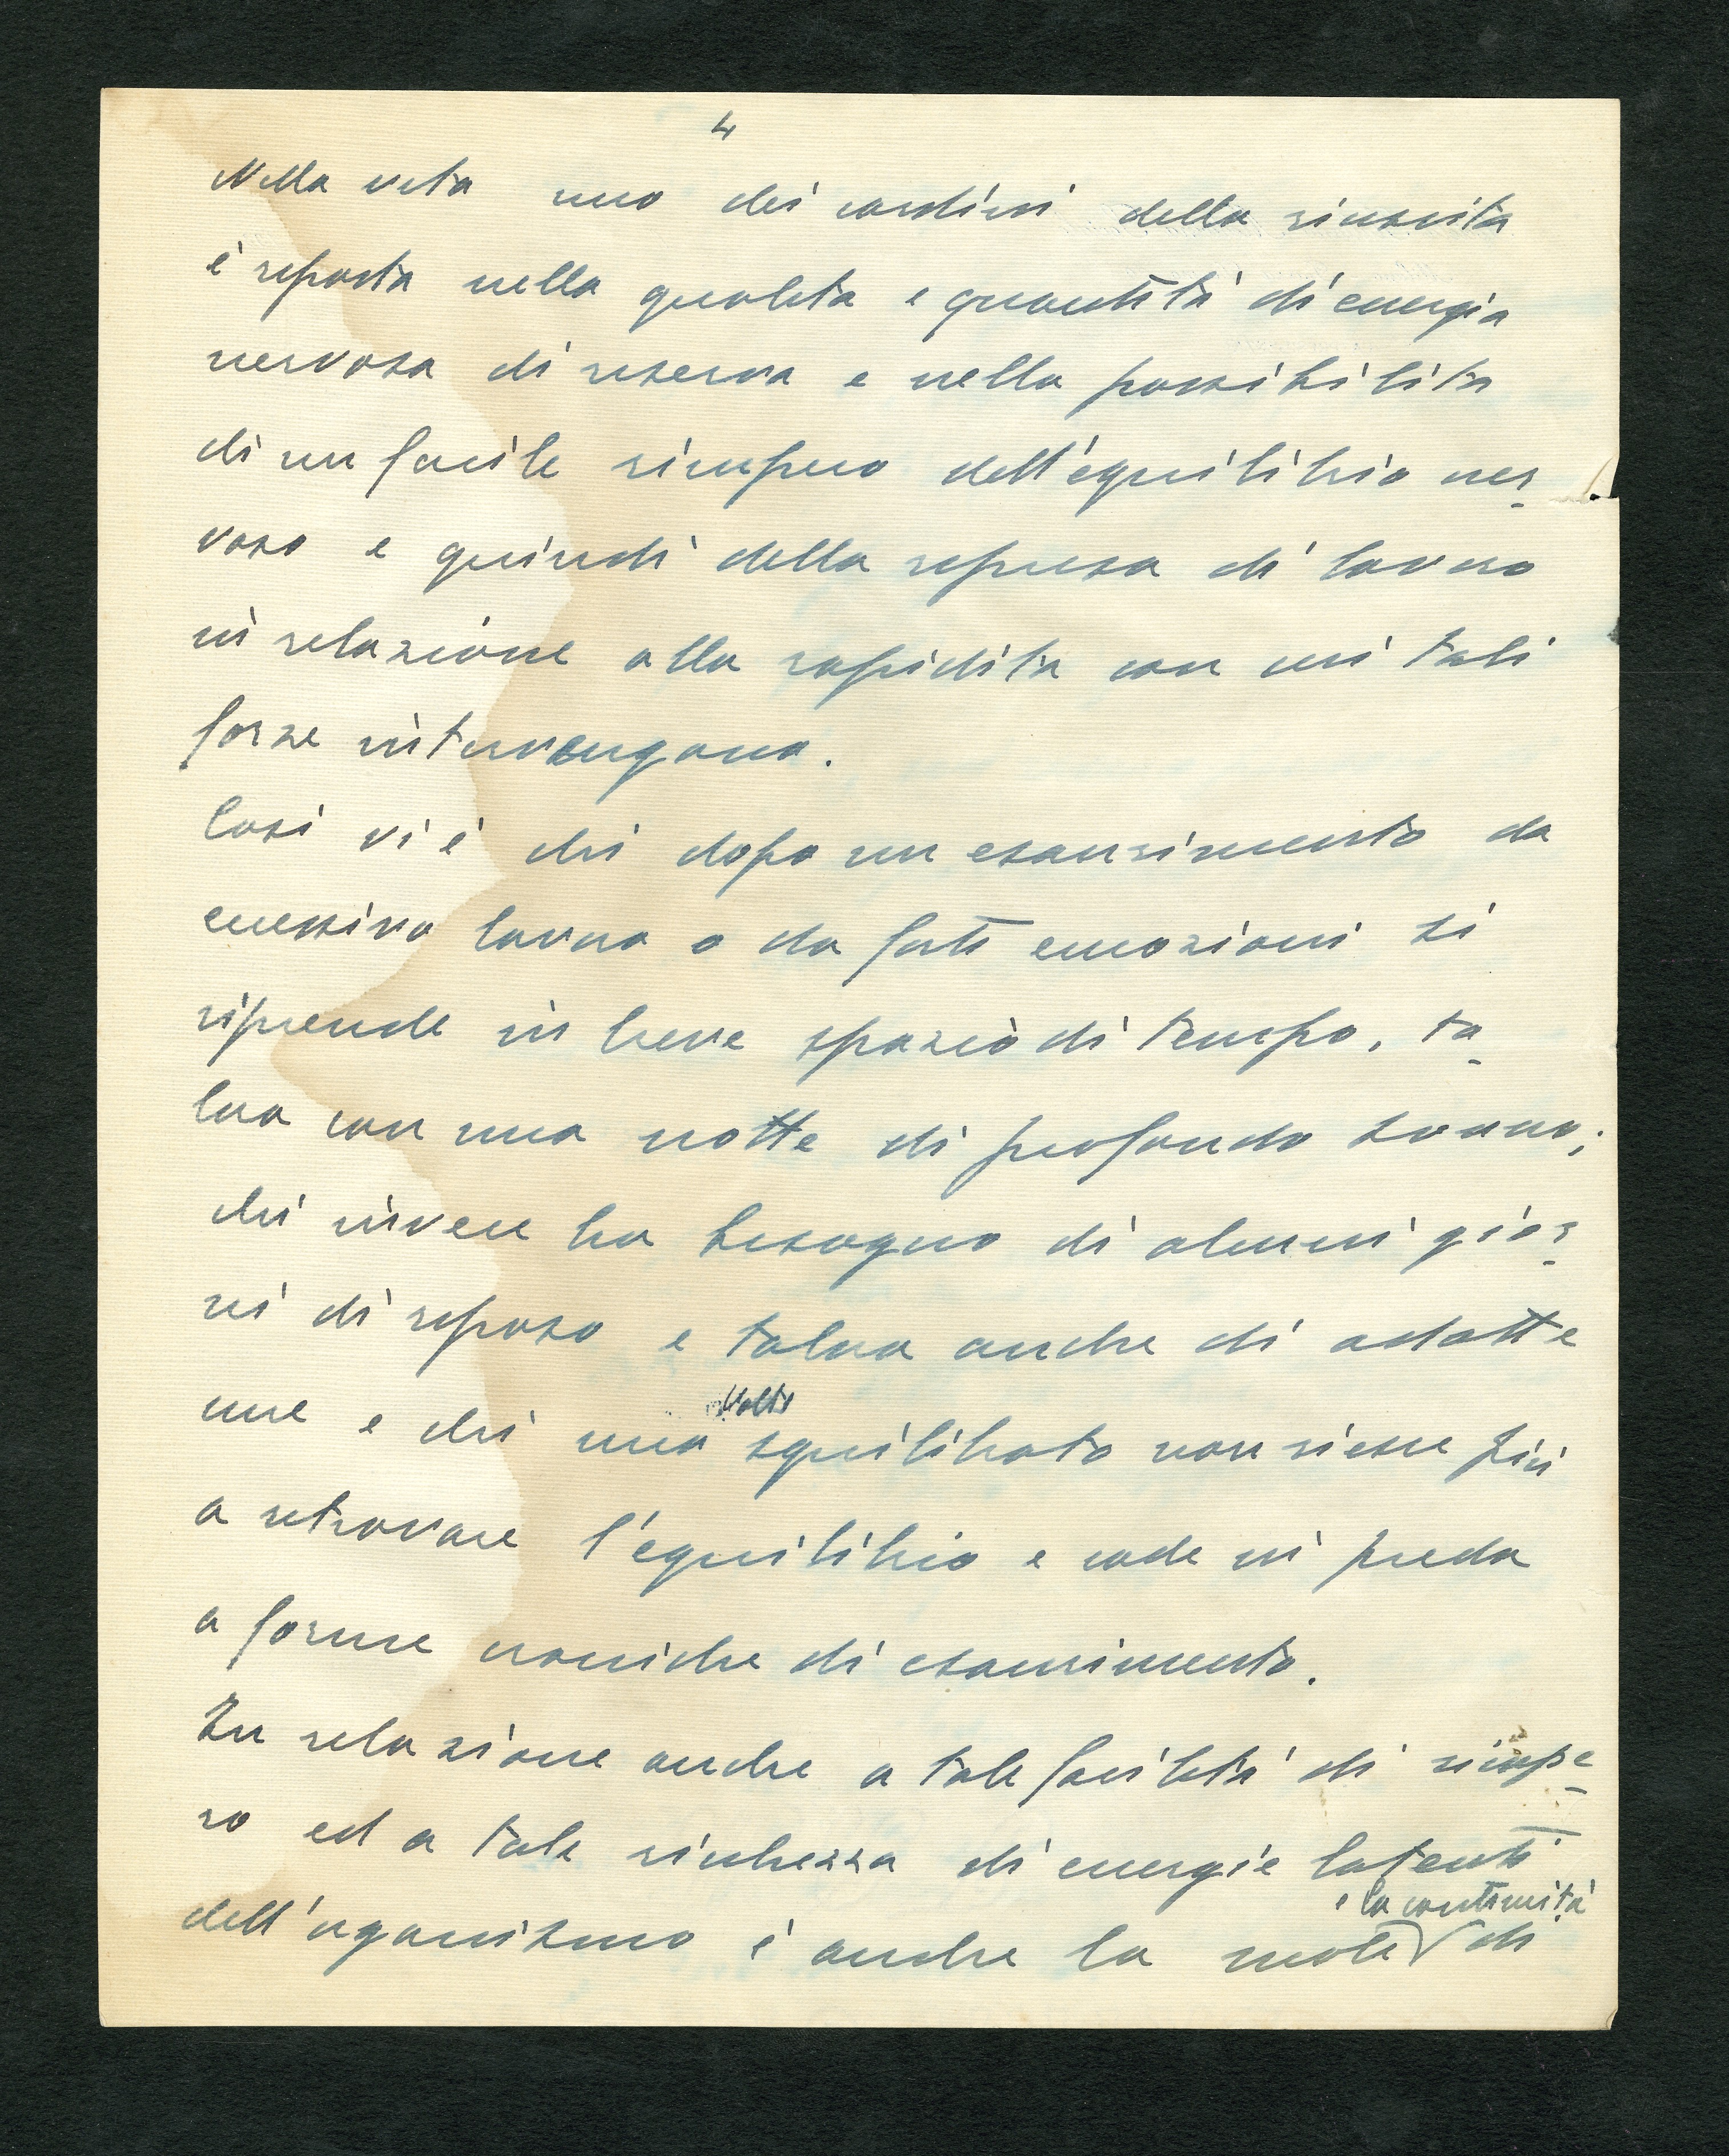 4
Nella vita uno dei cardini della riuscita
é riposta nella qualita e quantità di energia
nervosa di riserva e nella possibilita
di un facile ricupero dell'equilibrio ner-
voso e quindi della ripresa di lavoro
in relazione alla rapidita con cui tali
forze intervengono.
Cosi vi é chi dopo un esaurimento da
eccessivo lavoro o da forti emozioni si
riprende in breve spazio di tempo, ta-
lora con una notte di profondo sonno;
chi invece ha bisogno di alcuni gior-
ni di riposo e talora anche di adatte
cure e chi una volta squilibrato non riesce più
a ritrovare l'equilibrio e cade in preda
a forme croniche di esaurimento.
In relazione anche a tale facilità di ricupe-
ro ed a tale ricchezza di energie latenti
dell'organismo é anche la mole e la continuità di